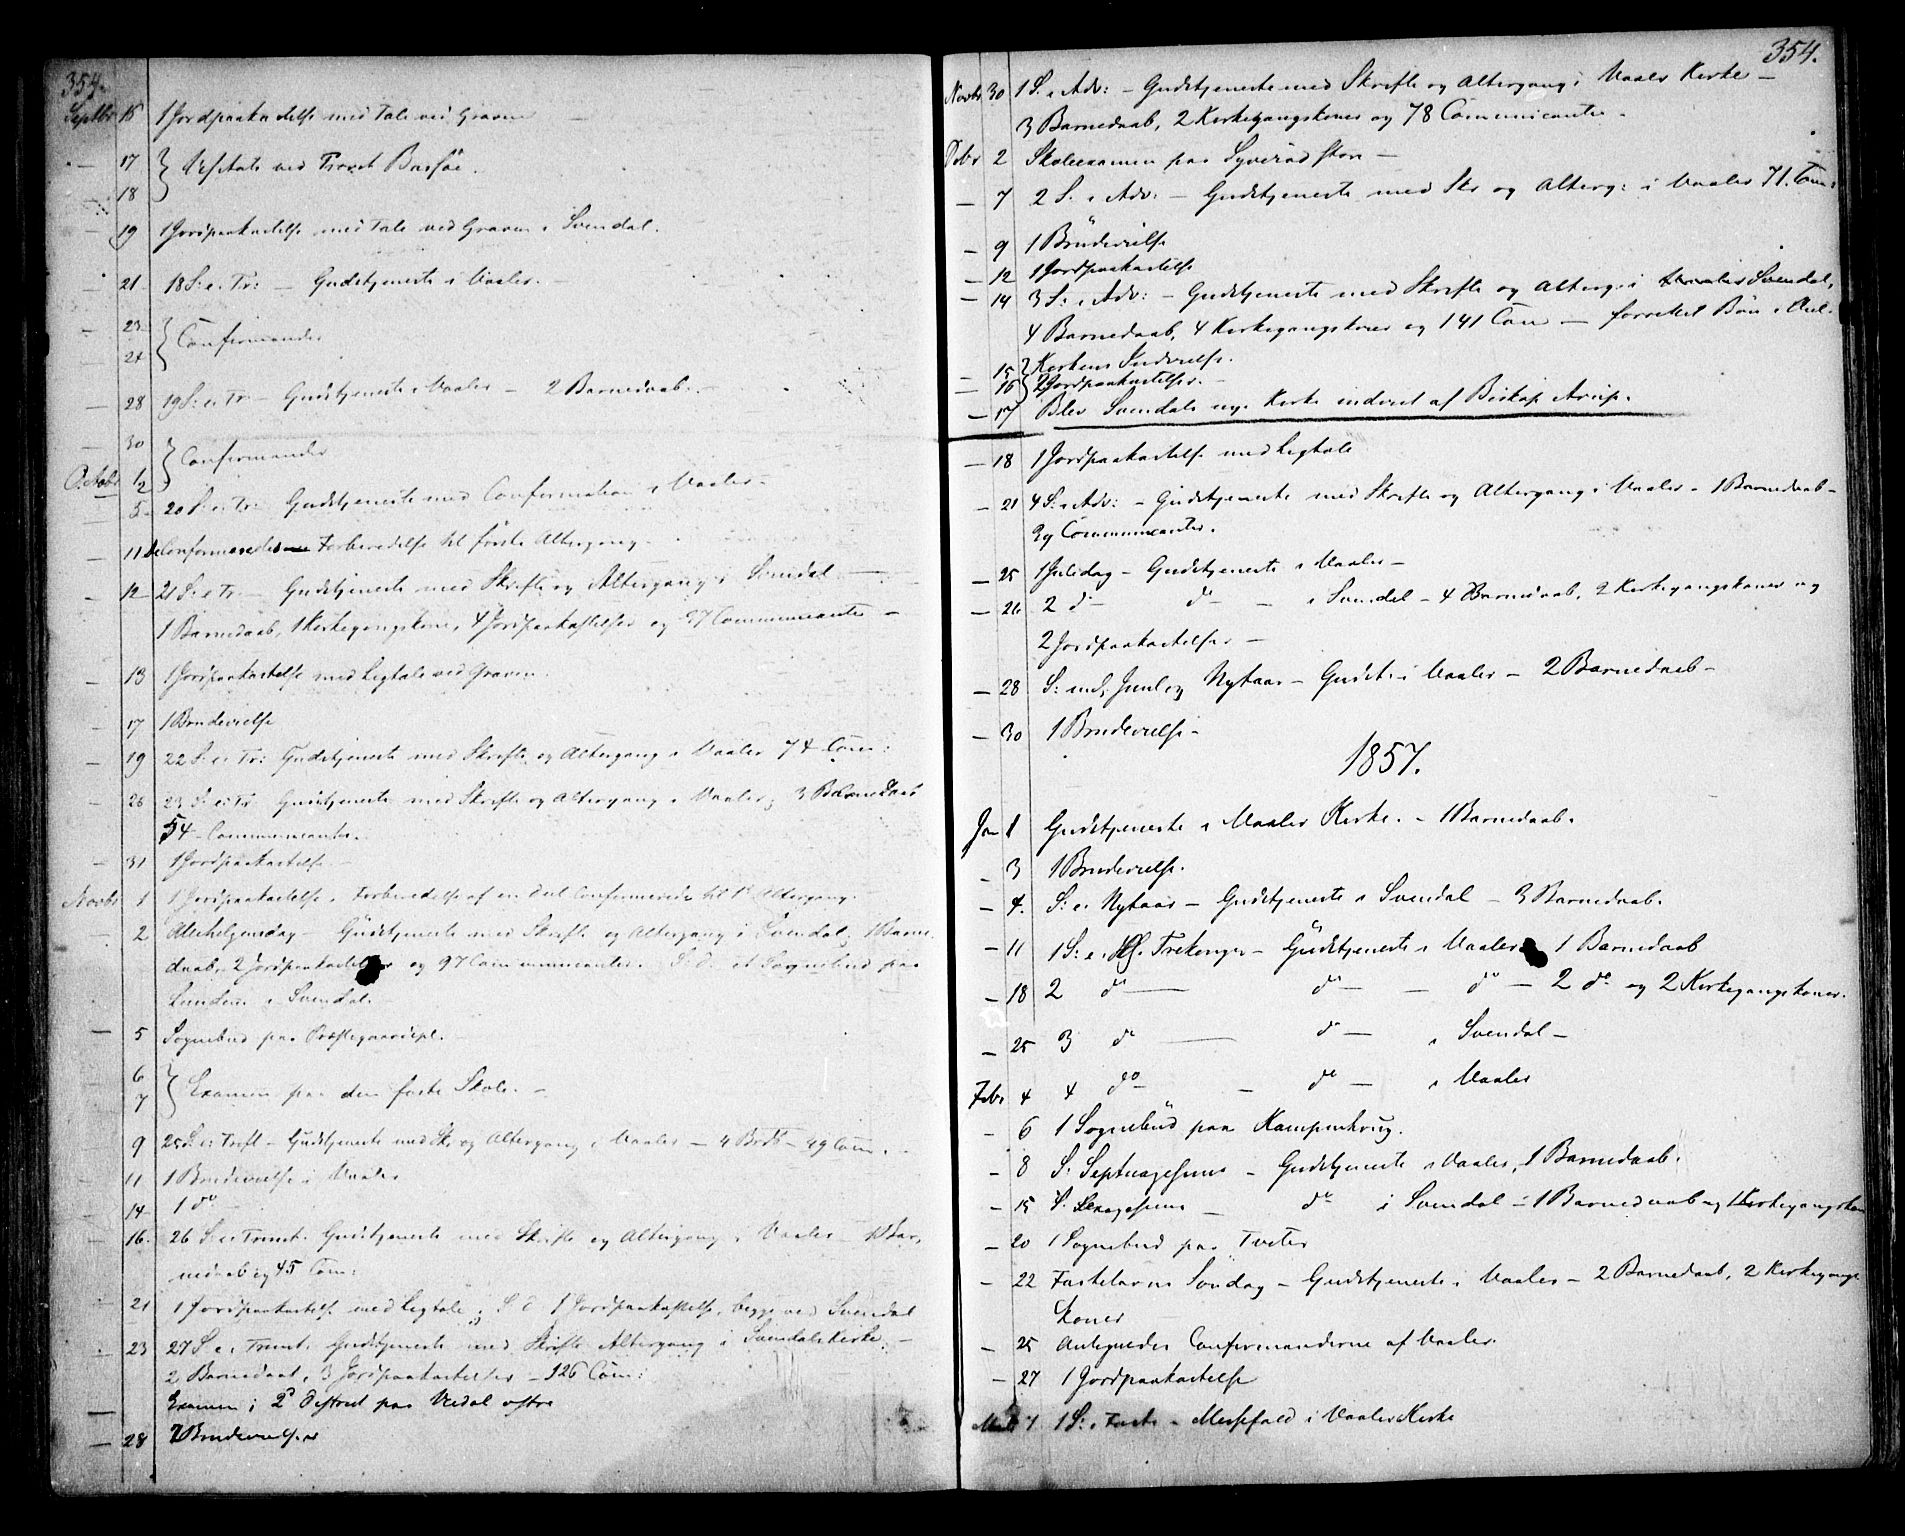 354.
Septbr 15 1 Jordpaakastelse med Tale ved Graven —
— 17 } Visitats ved Provst Bassöe.
18
— 19 1 Jordpaakastelse med Tale ved Graven i Svendal.
— 21 18 S: e. Tr: — Gudstjeneste i Vaaler. —
— 23 } Confirmander
24
— 28 19 S: e. Tr — Gudstjeneste i Vaaler — 2 Barnedaab. —
— 30 } Confirmander
Octobr 1
2
5 20 S: e. Tr: Gudstjeneste med Confirmation i Vaaler —
— 11 Forberedelse til förste Altergang —
— 12 21 S: e Tr. — Gudstjeneste med Skrifte og Altergang i Svendal —
1 Barnedaab, 1 Kirkegangskone, 4 Jordpaakastelser og 97 Communicanter —
— 13 1 Jordpaakastelse med Ligtale ved Graven.
— 17 1 Brudevielse
— 19 22 S: e. Tr: Gudstjeneste med Skrifte og Altergang i Vaaler 74 Com:
— 26 23 S: e. Tr Gudstjeneste med Skrifte og Altergang i Vaaler, 3 Barnedaab
54 Communicanter.
— 31 1 Jordpaakastelse —
Novbr 1 1 Jordpaakastelse. Forberedelse af en Deel Confirmerede til 1ste Altergang.
— 2 Allehelgensdag — Gudstjeneste med Skrifte og Altergang i Svendal, 1 Barne
daab, 2 Jordpaakastelser og 97 Communicanter. S. D. et Sognebud paa
i Svendal.
— 5 Sognebud paa Præstegaardspl. —
6 } Examen paa den faste Skole. —
7
9 25 S. e: Trefl — Gudstjeneste med Skr og Altergang i Vaaler — 4 Brdb — 49 Com. —
11 1 Brudevielse i Vaaler
— 14 1 do
— 16. 26 S. e. Trinit. Gudstjeneste med Skrifte og Altergang i Vaaler — 1 Bar,
nedaab og 45 Com:
— 21 1 Jordpaakastelse med Ligtale; S. D 1 Jordpaakastelse, begge ved Svendal
— 23 27 S. e. Trinit. Gudstjeneste med Skrifte Altergang i Svendals Kirke —
2 Barnedaab, 3 Jordpaakastelser — 126 Com:
— Examen i 2d District paa Vedal østre
— 28 2 Brudevielser
354.
Novbr 30 1 S. i Adv: — Gudstjeneste med Skrifte og Altergang i Vaaler Kirke —
3 Barnedaab, 2 Kirkegangskoner og 78 Communicanter —
Debr 2 Skoleexamen paa Syverød store —
— 7 2 S. i Adv: — Gudstjeneste med Skr og Alterg: i Vaaler 71. Com:
— 9 1 Brudevielse
— 12 1 Jordpaakastelse
— 14 3 S: i Adv: — Gudstjeneste med Skrifte og Alterg: i Svendal,
4 Barnedaab, 4 Kirkegangskoner og 141 Com — forrettet Bön i Anl.
— 15 } Kirkens Indvielse.
— 16 2 Jordpaakastelser. —
— 17 Blev Svendals nye Kirke indviet af Biskop Arup.
— 18 1 Jordpaakastelse med Ligtale
— 21 4 S: i Adv: — Gudstjeneste med Skrifte og Altergang i Vaaler — 1 Barnedaab —
29 Communicanter.
— 25 1 Juledag — Gudstjeneste i Vaaler —
— 26 2 d — do — — i Svendal — 4 Barnedaab, 2 Kirkegangskoner og
2 Jordpaakastelser —
— 28 S: ml. Juul og Nytaar — Gudst: i Vaaler — 2 Barnedaab —
— 30 1 Brudevielse —
1857.
Jan 1 Gudstjeneste i Vaaler Kirke. — 1 Barnedaab.
— 3 1 Brudevielse.
— 4. S: e. Nytaar — Gudstjeneste i Svendal — 3 Barnedaab.
— 11 1 S: e. H. Trekonger — Gudstjeneste i Vaaler 1 Barnedaab
— 18 2 do — do — — do — 2 do og 2 Kirkegangskoner.
— 25 3 do — do — i Svendal —
Febr 4 4 do — — do — i Vaaler
— 6 1 Sognebud paa Kampenhoug.
— 8 S: Septuagesima — Gudstjeneste i Vaaler, 1 Barnedaab.
— 15 S: Sexagesima — do i Svendal — 1 Barnedaab og 1 Kirkegangskon
— 20 1 Sognebud paa Tveter
— 22 Fastelavns Söndag — Gudstjeneste i Vaaler — 2 Barnedaab, 2 Kirkegangs
koner
— 25 Antegnedes Confirmanderne af Vaaler.
— 27 1 Jordpaakastelse
1. 1 S: i Faste — Messefald i Vaaler Kirke